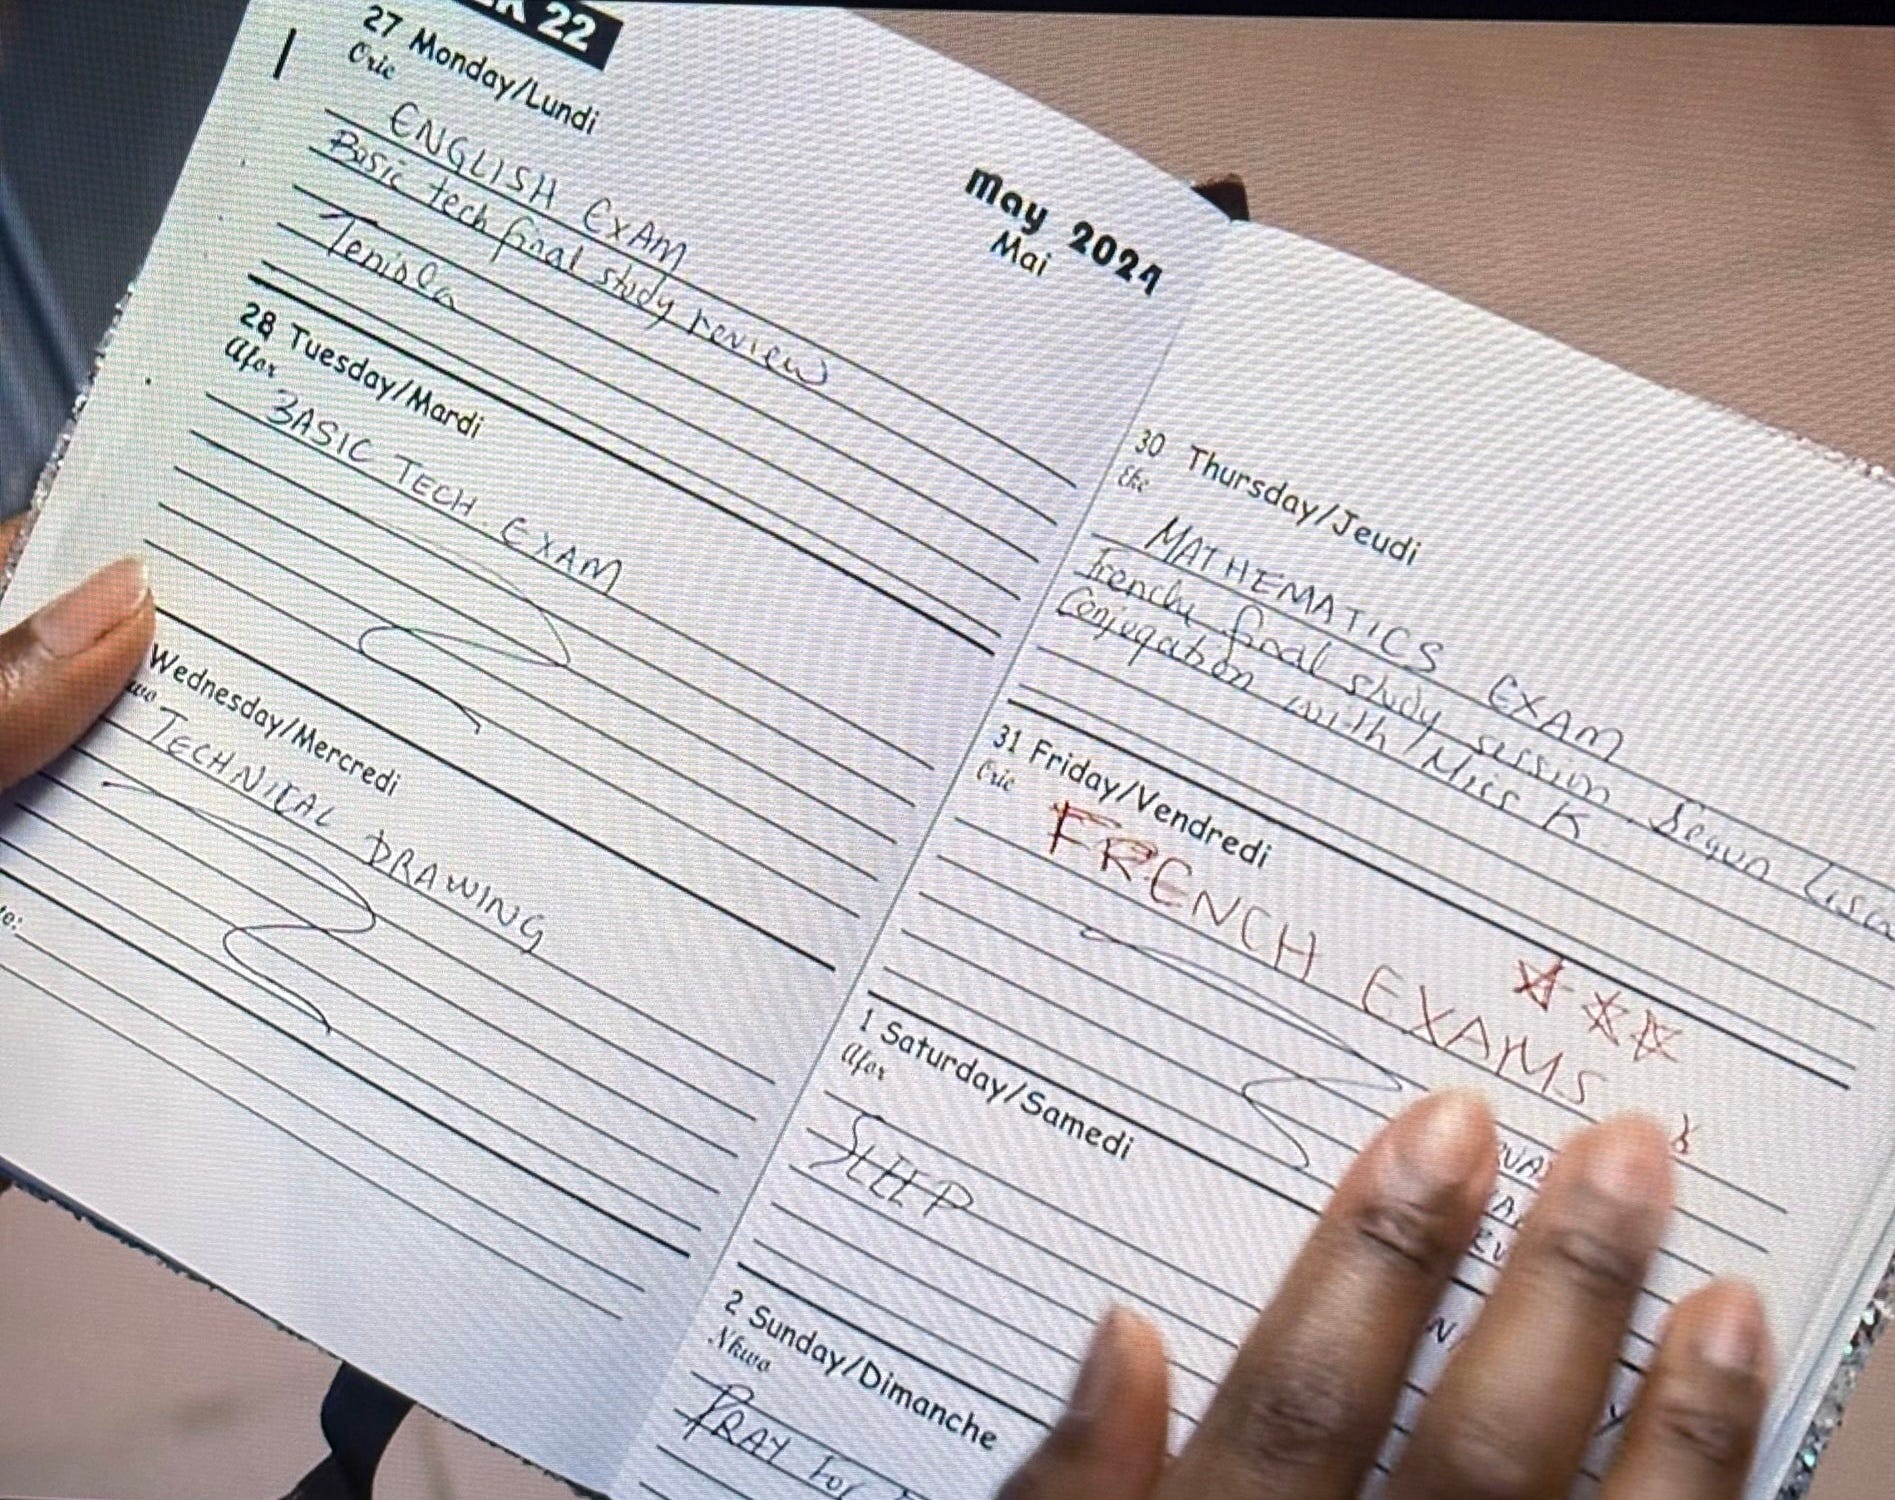 22
27 Monday/Lundi
Orie
ENGLISH EXAM
Basic tech final study review
Teniola
May 2024
Mai
28 Tuesday/Mardi
Afor
BASIC TECH EXAM
Wednesday/Mercredi
TECHNICAL DRAWING
30 Thursday/Jeudi
Eke
MATHEMATICS EXAM
Frenche final study session. Segun
Conjugation with Miss K
31 Friday/Vendredi
Orie
FRENCH EXAMS
1 Saturday/Samedi
Afor
SLEEP
2 Sunday/Dimanche
Nkwo
PRAY for